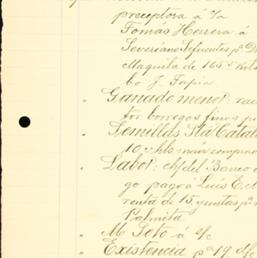 preceptora á c/a
Tomás Herrera á
Severiano Sifuentes p.
Maquila de 165 Kil
bo J. Tapia
" Ganado menor: rac
tor borregos finos p
" Semillas Sta Catal
10 hls maiz compra
" Labor: ch/ del Banco
go pagrá Luis E.
renta de 15 yuntas p.
Palmita
" M Soto á c/c
" Existencia p. 19 d/c